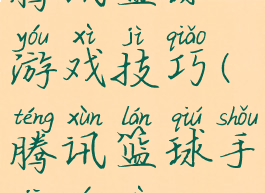 yóu xì jì qiǎo
游戏技巧(
téng xùn lán qiú shǒu
腾讯篮球手